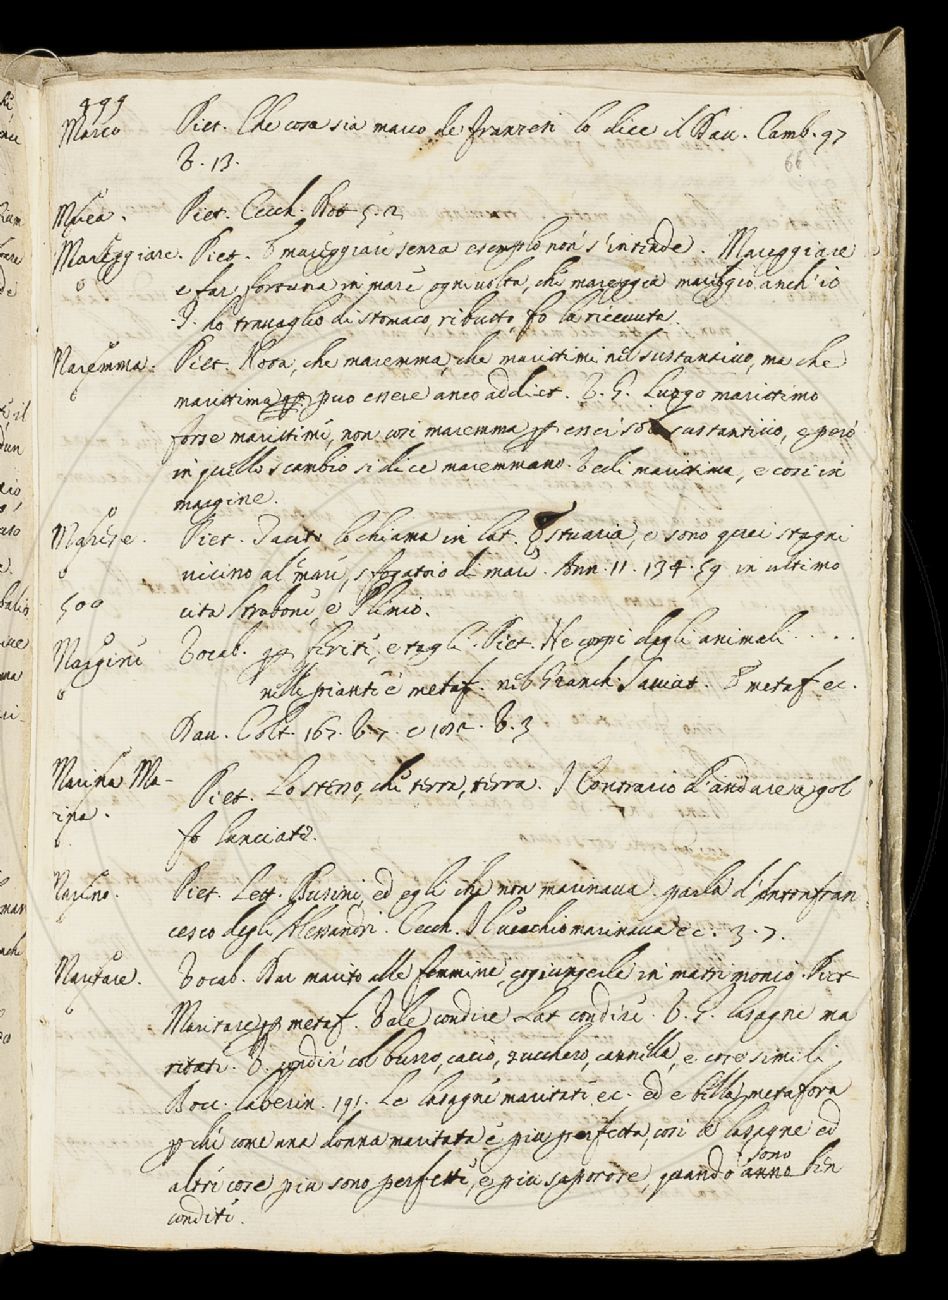 499
Marco Piet. Che cosa sia marco de franzesi lo dice il Dav. Camb. 97
66
B. 13.
Marea. Piet. Cecch. 5. 2
Mareggiare. Piet. mareggiare senza esemplo non s'intende. Mareggiare
e far fortuna in mare ogni volta, che mareggia mareggio anch'io
ho travaglio di stomaco, ributto, fo la ricevuta.
Maremma. Piet. Nota, che maremma, che marittimi nel sustantivo, ma che
marittima puo essere anco addiet. V. G. Luogo marittimo
forse marittimi, non cosi maremma esser solo sustantivo, e però
in quello scambio si dice maremmano. Vedi marittima, e cosi in
margine.
Marese. Piet. Tacito lo chiama in lat. Estuaria, e sono quei stagni
vicino al mare, sfogatoio di mare. Ann. 11. 134. 59. in ultimo
500 cita Strabone, e Plinio.
Margini Vocab. ferite, e tagli. Piet. Ne corpi degli animali . . . .
nelle piante è metaf. nel Granch. Salviat. metaf ec.
Dav. Colt. 167. V. 7. e 182. V. 3
Marina Ma-
rina. Piet. Lo stesso, che terra, terra. Contrario d'andare a gol
fo lanciato.
Marino. Piet. Lett. Businj, ed egli che non marinava. parla d'Antonfran
cesco degli Alessandri. Cecch. Il vecchio marinava ec. 3. 7.
Maritare. Vocab. Dar marito alle femmine, congiungerle in matrimonio. Piet
Maritare metaf. Vale condire Lat condire. V. G. lasagne ma
ritate. V. condire col burro, cacio, zucchero, cannella, e cose simili,
Bocc. laberin. 191. Le lasagne maritate ec. ed e bella metafora
che come una donna maritata è piu perfetta, cosi le lasagne ed
sono
altre cose piu sono perfette, e piu saporose, quando anno ben
condite.